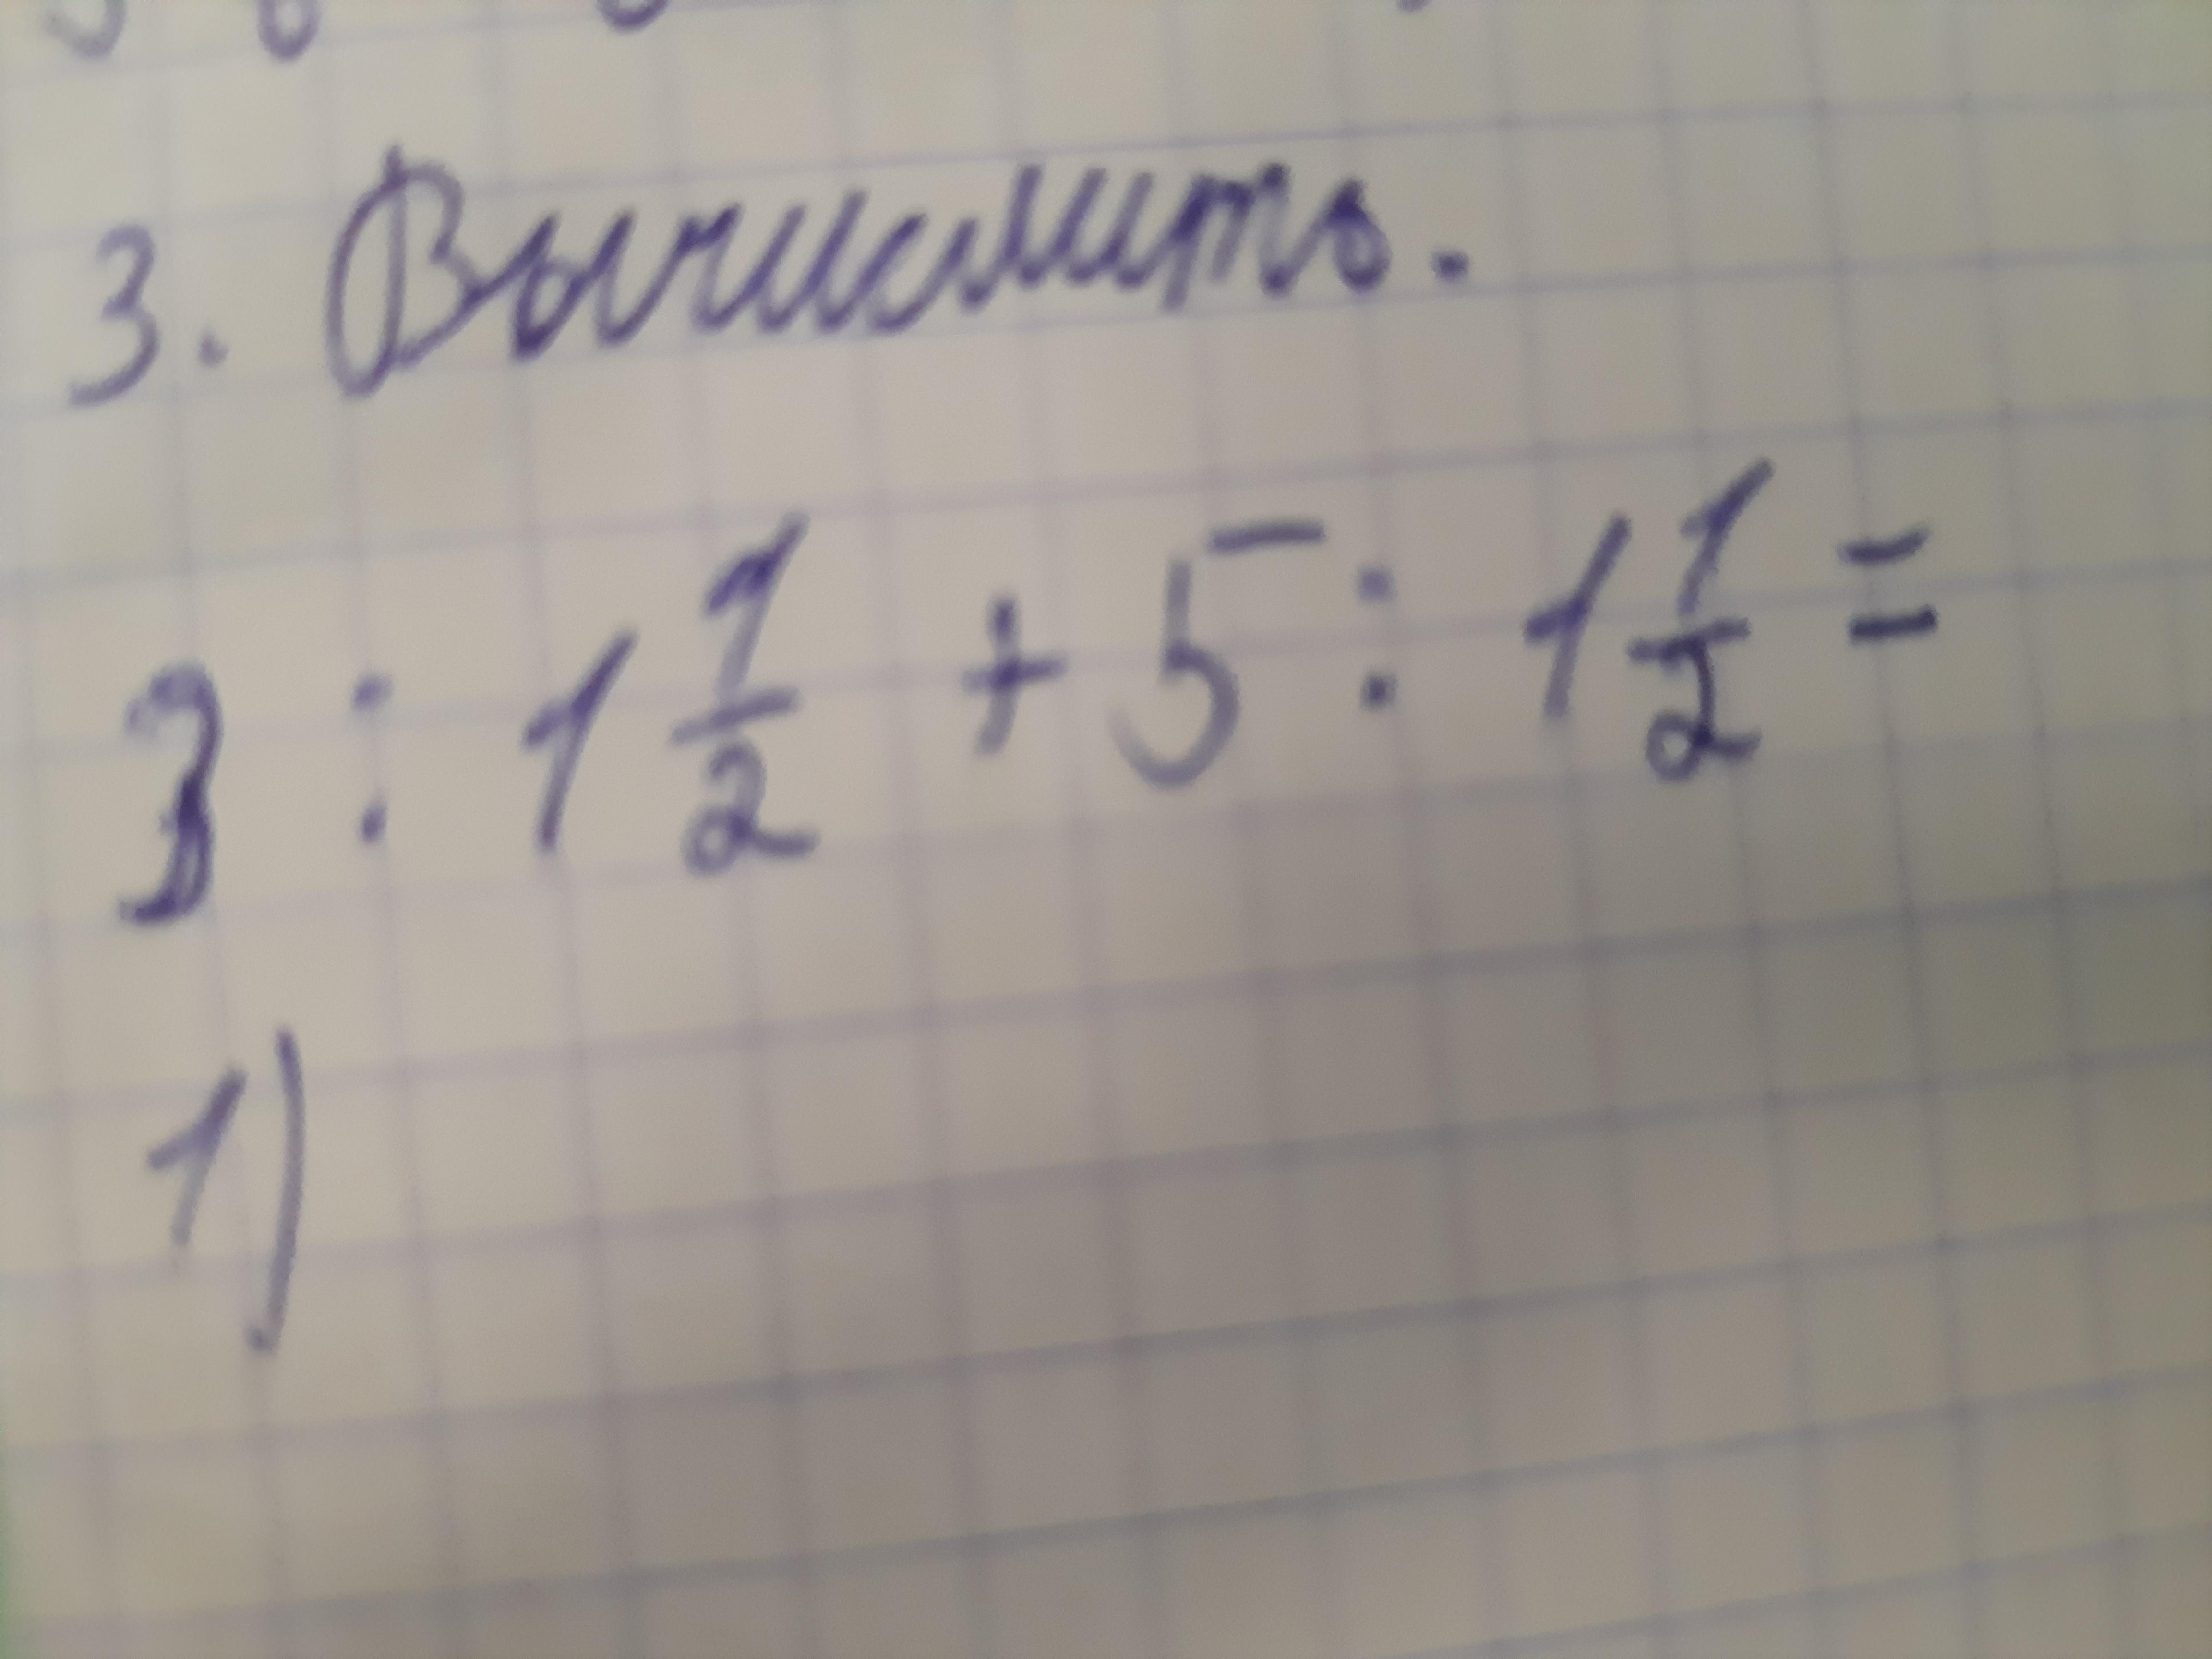 3. Вычислить.
3 : 1 1/2 + 5 : 1 1/2 =
1)